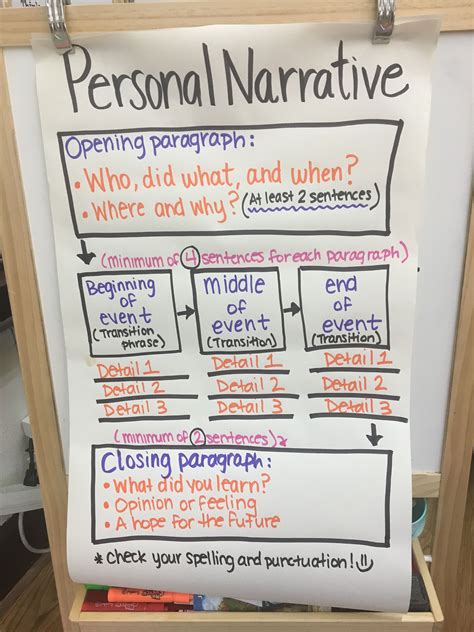 Personal Narrative
Opening paragraph:
• Who, did what, and when?
• Where and why? (At least 2 sentences)
(minimum of 4 sentences for each paragraph)
Beginning of event (Transition phrase)
middle of event (Transition)
end of event (Transition)
Detail 1 Detail 1 Detail 1
Detail 2 Detail 2 Detail 2
Detail 3 Detail 3 Detail 3
(minimum of 2 sentences)*
Closing paragraph:
• What did you learn?
• Opinion or feeling
• A hope for the future
* Check your spelling and punctuation!